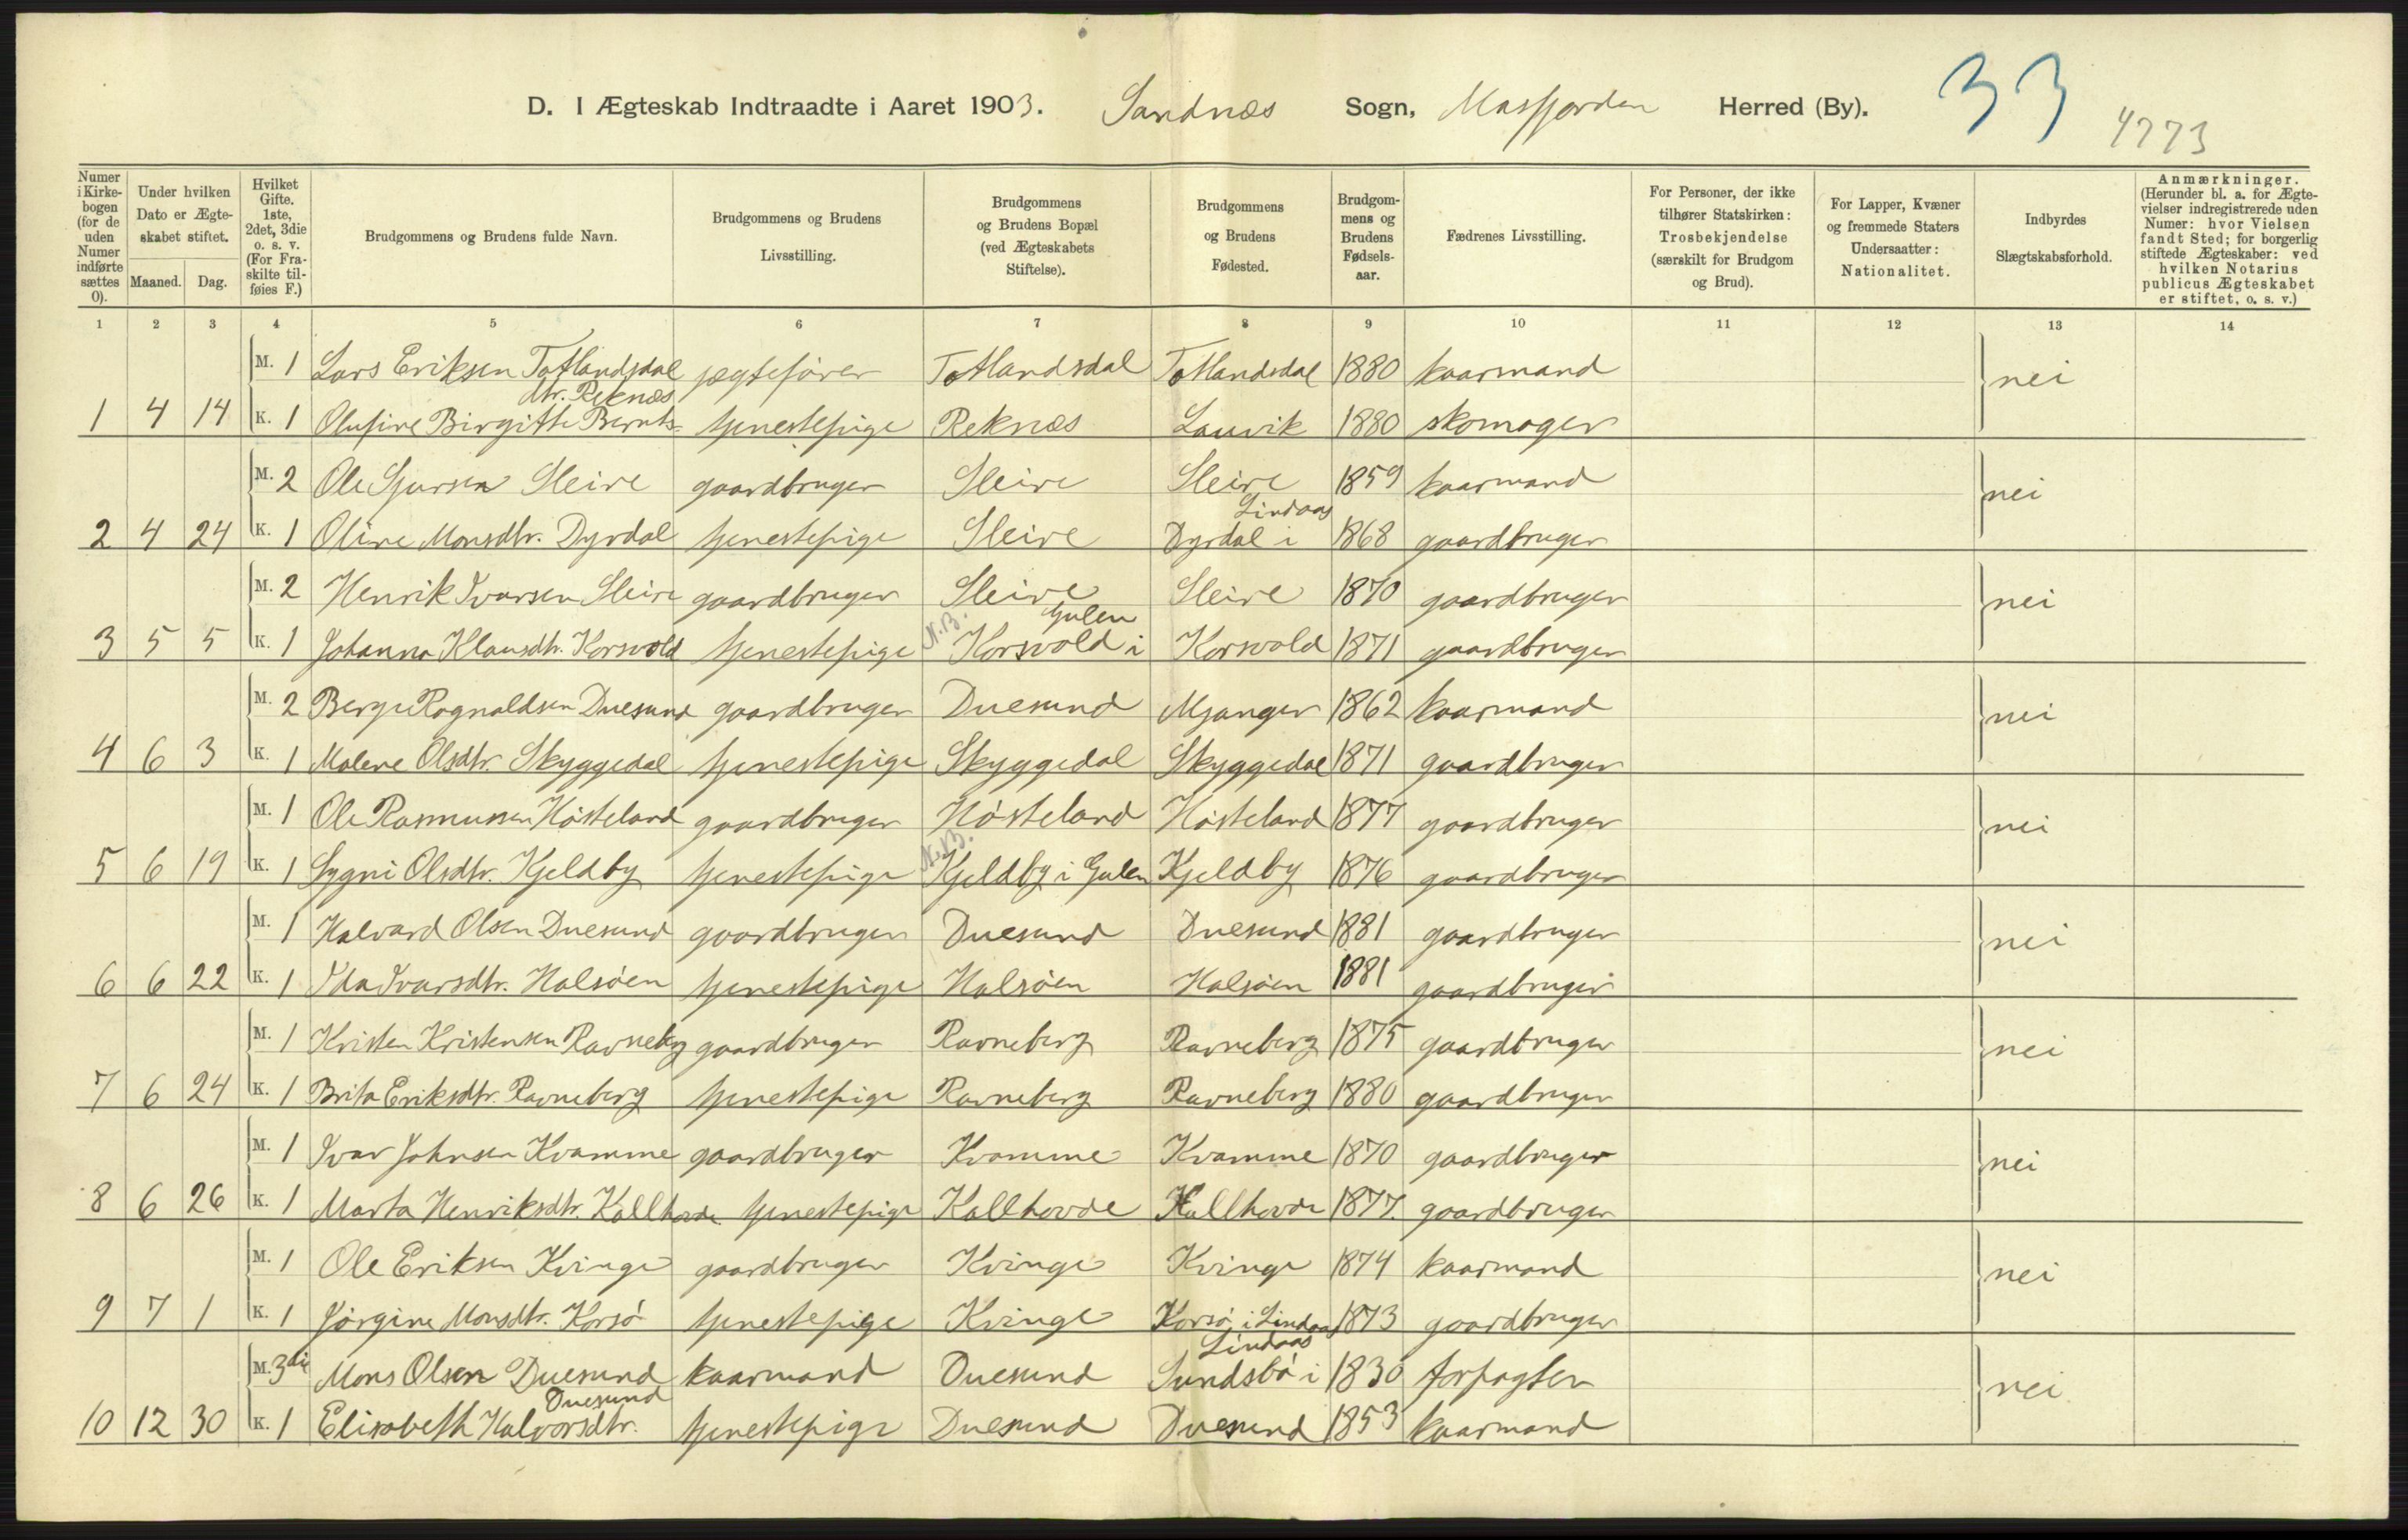 D. I Ægteskab Indtraadte i Aaret 1903. Sandnæs Sogn, Masfjorden Herred (By). 33
4773
Numer i Kirkebogen (for de uden Numer indførte sættes 0).
Under hvilken Dato er Ægteskabet stiftet.
Maaned. Dag.
Hvilket Gifte. 1ste, 2det, 3die o. s. v. (For Fraskilte tilføies F.)
Brudgommens og Brudens fulde Navn.
Brudgommens og Brudens Livsstilling.
Brudgommens og Brudens Bopæl (ved Ægteskabets Stiftelse).
Brudgommens og Brudens Fødested.
Brudgommens og Brudens Fødselsaar.
Fædrenes Livsstilling.
For Personer, der ikke tilhører Statskirken: Trosbekjendelse (særskilt for Brudgom og Brud).
For Lapper, Kvæner og fremmede Staters Undersaatter: Nationalitet.
Indbyrdes Slægtskabsforhold.
Anmærkninger. (Herunder bl. a. for Ægtevielser indregistrerede uden Numer: hvor Vielsen fandt Sted; for borgerlig stiftede Ægteskaber: ved hvilken Notarius publicus Ægteskabet er stiftet, o. s. v.)
1 2 3 4 5 6 7 8 9 10 11 12 13 14
M. 1 Lars Eriksen Totlandsdal jægtefører Totlandsdal Totlandsdal 1880 kaarmand nei
dtr. Reknæs
1 4 14 K. 1 Olufine Birgitte Bernts- tjenestepige Reknæs Lauvik 1880 skomager
M. 2 Ole Sjursen Sleire gaardbruger Sleire Sleire 1859 kaarmand nei
Lindaas
2 4 24 K. 1 Oline Monsdtr. Dyrdal tjenestepige Sleire Dyrdal i 1868 gaardbruger
M. 2 Henrik Ivarsen Sleire gaardbruger Sleire Sleire 1870 gaardbruger nei
N.B. Gulen
3 5 5 K. 1 Johanna Klausdtr. Korsvold tjenestepige Korsvold i Korsvold 1871 gaardbruger
M. 2 Berge Ragnaldsen Duesund gaardbruger Duesund Mjanger 1862 kaarmand nei
4 6 3 K. 1 Malene Olsdtr. Skyggedal tjenestepige Skyggedal Skyggedal 1871 gaardbruger
M. 1 Ole Rasmussen Hósteland gaardbruger Hósteland Hósteland 1877 gaardbruger nei
N.B.
5 6 19 K. 1 Sygni Olsdtr. Kjeldby tjenestepige Kjeldby i Gulen Kjeldby 1876 gaardbruger
M. 1 Halvard Olsen Duesund gaardbruger Duesund Duesund 1881 gaardbruger nei
6 6 22 K. 1 Ida Ivarsdtr. Halsóen tjenestepige Halsóen Halsóen 1881 gaardbruger
M. 1 Kristen Kristensen Ravneberg gaardbruger Ravneberg Ravneberg 1875 gaardbruger nei
7 6 24 K. 1 Brita Eriksdtr. Ravneberg tjenestepige Ravneberg Ravneberg 1880 gaardbruger
M. 1 Ivar Johnsen Kvamme gaardbruger Kvamme Kvamme 1870 gaardbruger nei
8 6 26 K. 1 Marta Henriksdtr. Kallhovde tjenestepige Kallhovde Kallhovde 1877. gaardbruger
M. 1 Ole Eriksen Kvinge gaardbruger Kvinge Kvinge 1874 kaarmand nei
9 7 1 K. 1 Jórgine Monsdtr. Korsó tjenestepige Kvinge Korsó i Lindaas 1873 gaardbruger
Lindaas
M. 3die Mons Olsen Duesund kaarmand Duesund Sundsbó i 1830 forpagter nei
Duesund
10 12 30 K. 1 Elisabeth Halvorsdtr. tjenestepige Duesund Duesund 1853 kaarmand